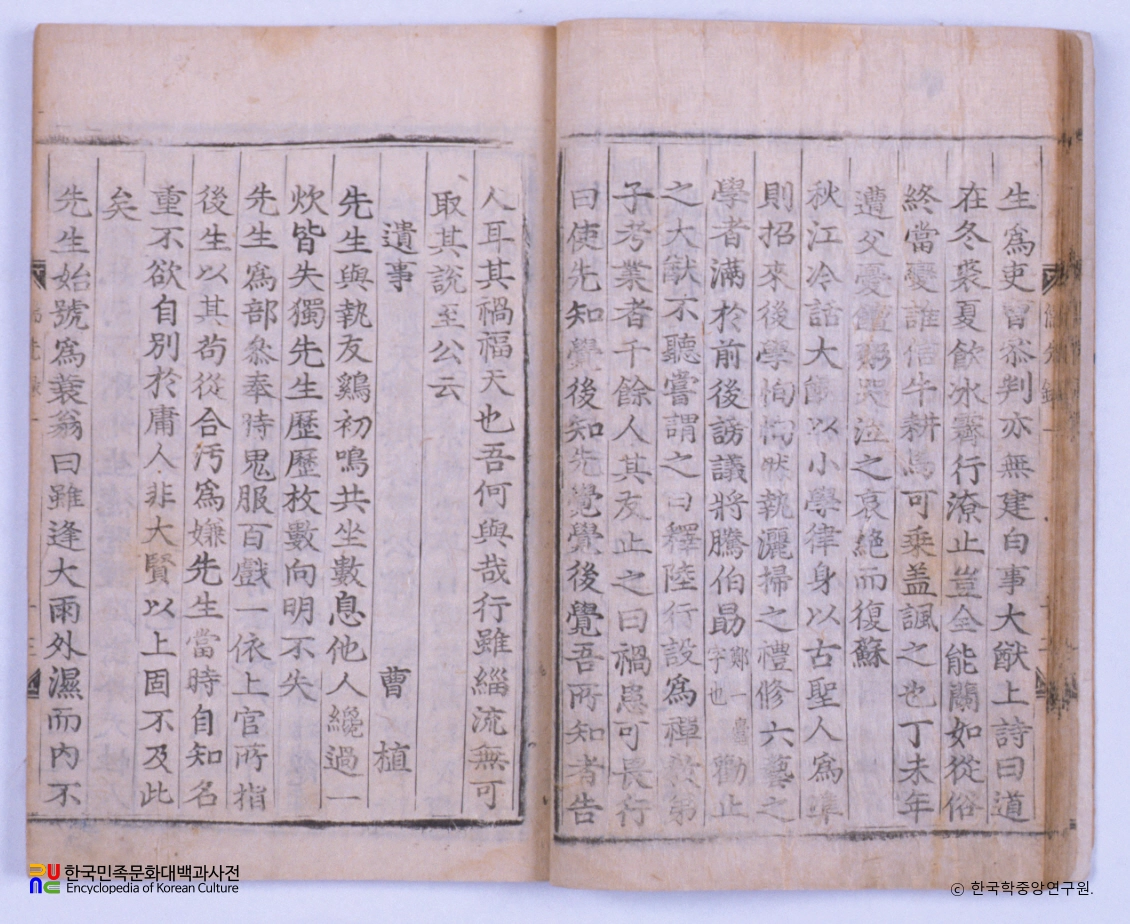 生爲吏曹叅判亦無建白事大猷上詩曰道
在冬裘夏飮氷霽行潦止豈全能蘭如從俗
終當變誰信牛耕馬可乗盖諷之也丁未年
遭父憂饘粥哭泣之哀絶而復蘇
秋江冷話大猷以小學律身以古聖人爲準
則招來後學恂恂然執灑掃之禮修六藝之
學者滿於前後謗議將騰伯勗鄭一蠧字也勸止
之大猷不聽嘗謂之曰釋陸行設爲禪敎弟
子考業者千餘人其友止之曰禍患可畏行
曰使先知覺後知先覺覺後覺吾所知者告
人耳其禍福天也吾何與哉行雖緇流無可
取其說至公云
遺事 曹植
先生與執友鷄初鳴共坐數息他人纔過一
炊皆失獨先生歷歷枚數向明不失
先生爲部叅奉時鬼服百戲一依上官所指
後生以其苟從合汚爲嫌先生當時自知名
重不欲自別於庸人非大賢以上固不及此
矣
先生始號爲蓑翁曰雖逢大雨外濕而内不
한국민족문화대백과사전
Encyclopedia of Korean Culture
© 한국학중앙연구원.